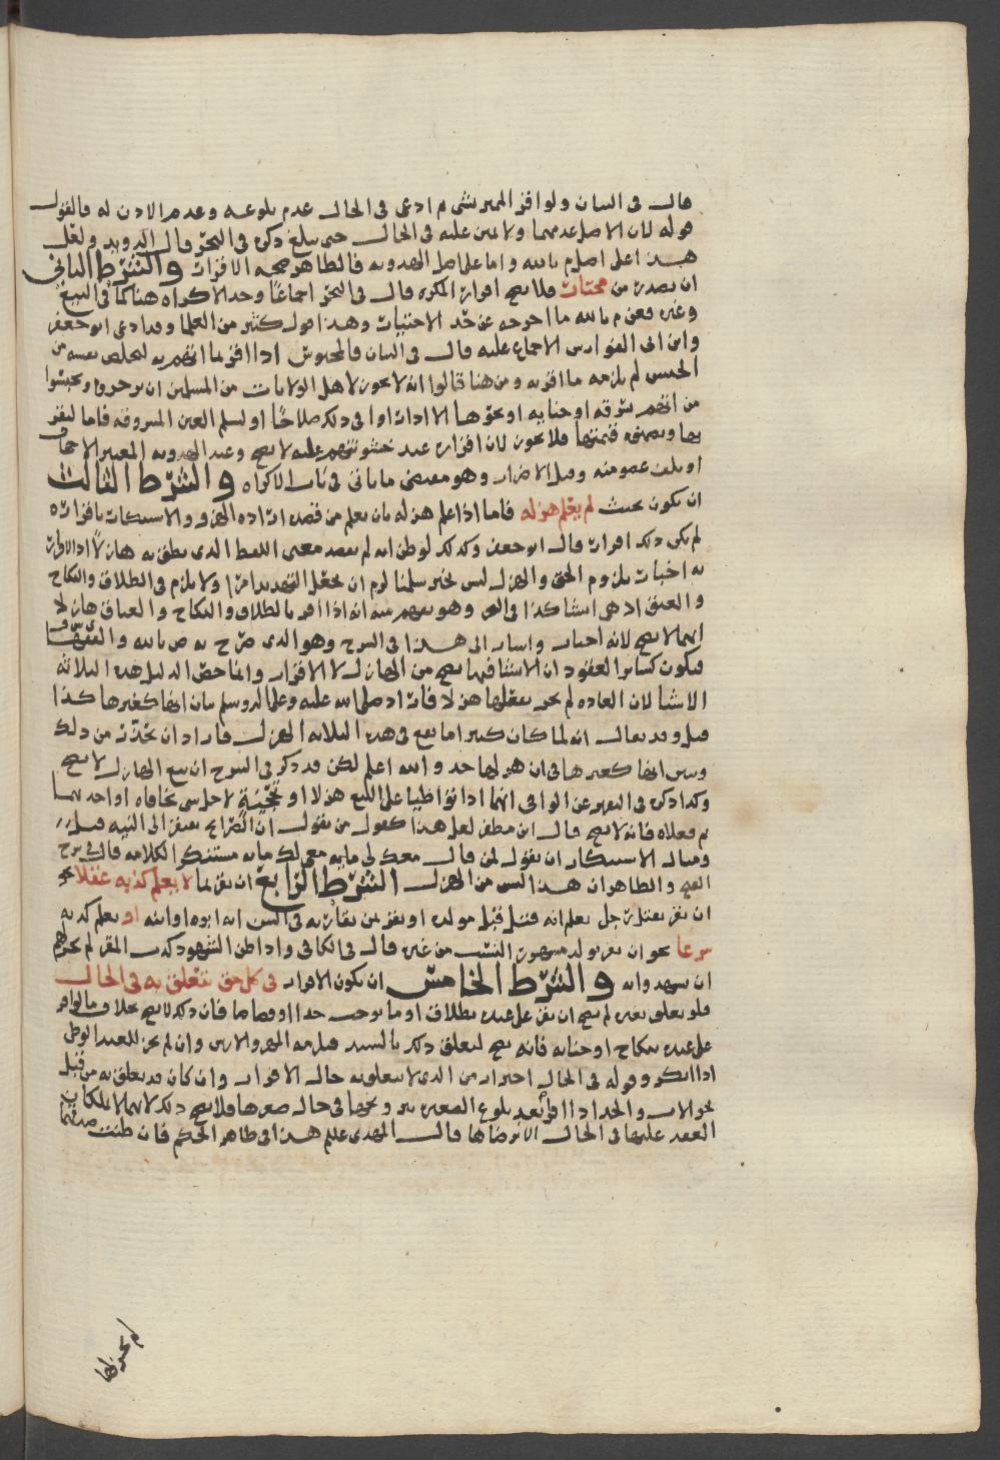 قال في البيان ولو اقر المميز بشي ثم ادعى في الحال عدم بلوغه وعدم الاذن له فالقول
قوله لان الاصل عدمهما ولا يمين عليه في الحال حتى يبلغ ذكره في البحر قال الدويد ولعل
هذا على اصل م بالله واما على اصل الهدويه فالظاهر صحه الاقرار والشرط الثاني
ان يصدر من مختار فلا يصح اقرار المكره قال في البحر اجماعًا وحد الاكراه هنا كما في البيع
وغيره فعن م بالله ما اخرجه عن حد الاختيار وهذا قول كثير من العلما وقد ادعى ابو جعفر
وابن ابي الفوارس الاجماع عليه قال في البيان فالمحبوس اذا اقر بما اتهم به ليخلص نفسه من
الحبس لم يلزمه ما اقر به ومن هنا قالوا انه لا يجوز لاهل الولايات من المسلمين ان يزجروا ويحبسوا
من اتهم بسرقه او جنايه او نحوها الا اذا راوا في ذلك صلاحًا او لتسلم العين المسروقه فاما ليقر
بها ويضمن قيمتها فلا يجوز لان اقراره عند خشونتهم عليه لا يصح وعند الهدويه المعتبر الاجحاف
او تلف عضو منه وقيل الاضرار وهو مقتضى ما ياتي في باب الاكراه والشرط الثالث
ان يكون بحيث لم يعلم هزله فاما اذا علم هزله بان يعلم من قصده ارادة الهزو والاستنكار باقراره
لم يكن ذلك اقرار قال ابو جعفر وكذلك لو ظن انه لم يقصد معنى اللفظ الذي نطق به هازلًا اذ الاقرار
به اخبار بلزوم الحق والهزل ليس بخبر سلمنا لزم ان يجعل التهديد امرا ولا يلزم في الطلاق والنكاح
والعتق اذ هي انشا كذا في وهو يفهم منه انه اذا اقر بالطلاق والنكاح والعتاق هازلا
انها لا يصح لانه اخبار واشار الى هذا في الشرح وهو الذي صرح به ص بالله والفقها ف
فيكون كسائر العقود ان الانشا فيها يصح من الهازل لا الاقرار وانما خص الدليل هذه الثلاثه
الانشا لان العاده لم تجر بفعلها هزلا فاراد صلى الله عليه وعلى اله وسلم بيان انها كغيرها كذا
قيل وقد يقال انه لما كان كثيرا ما يقع في هذه الثلاثه الهزل فاراد ان يحذر من ذلك
وبين انها كغيرها في ان هزلها جد والله اعلم لكن قد ذكر في الشرح ان بيع الهازل لا يصح
وكذا ذكره في التقرير عن الوافي انهما اذا تواطيا على البيع هزلا او تلجئة لاجل شي يخافاه او احدهما
ثم فعلاه فانه لا يصح قال ابن مظفر لعل هذا كقول من يقول ان الصرايح تفتقر الى النيه قيل
ومثال الاستنكار ان يقول لمن قال معك لي مايه معي لك مايه مستنكرا لكلامه قال في شرح
الفتح والظاهر ان هذا ليس من الهزل الشرط الرابع ان يقر بما لا يعلم كذبه عقلا نحو
ان يقر بقتل رجل يعلم انه قتل قبل مولده او يقر بمن يقاربه في السن انه ابوه او ابنه او يعلم كذبه
شرعا نحو ان يقر بولد مشهور النسب من غيره قال في الكافي واذا ظن الشهود كذب المقر لم يجز لهم
ان يشهدوا به والشرط الخامس ان يكون الاقرار في كل حق يتعلق به في الحال
فلو تعلق بغيره لم يصح ان يقر على عبده بطلاق او ما يوجب حدا او قصاصا فان ذلك لا يصح بخلاف ما لو اقر
على عبده بنكاح او جنايه فانه يصح لتعلق ذلك بالسيد فيلزمه المهر والارش وان لم يجز للعبد الوطي
اذا انكر وقوله في الحال احتراز من الذي لا يتعلق به حال الاقرار وان كان قد يتعلق به من قبل
نحو الاب والجد اذا اقر بعد بلوغ الصغيره بتزويجها في حال صغرها فلا يصح ذلك لانهما لا يملكان
العقد عليها في الحال الا برضاها قال المهدي علم هذا في ظاهر الحكم فان ظنت صدقهما
لم يجز لها